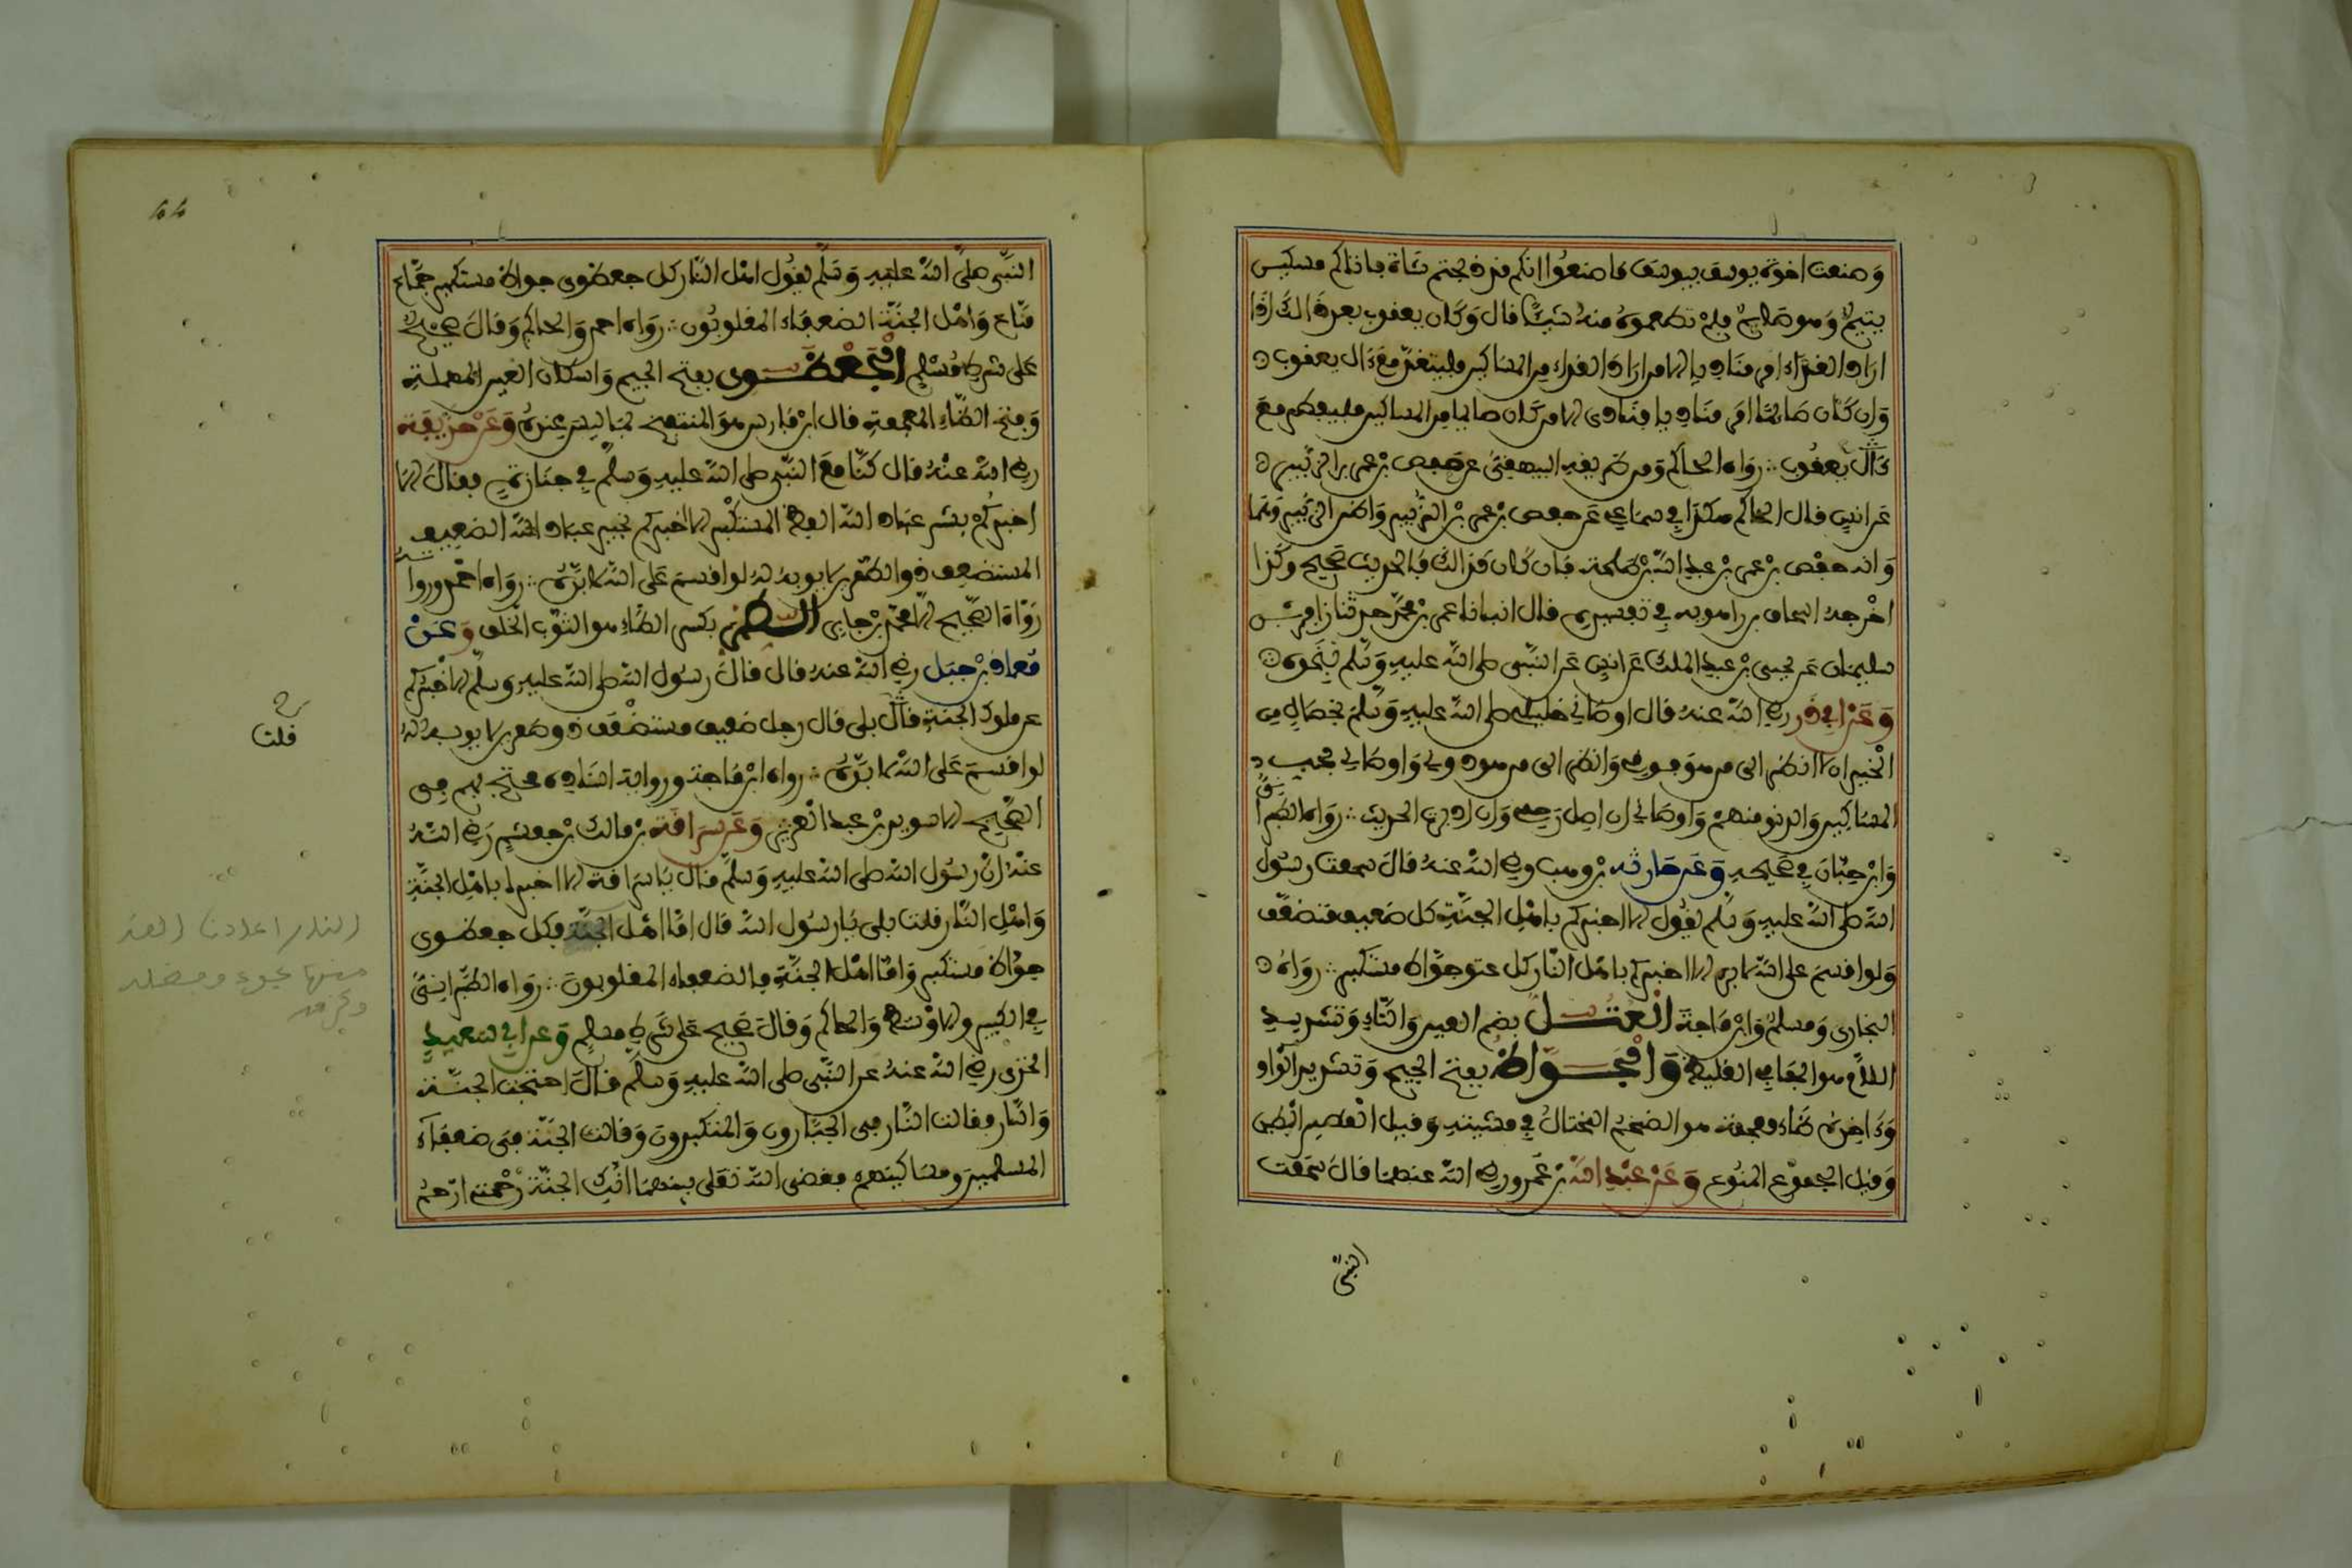 وصنعت اخوة يوسف بيوسف ما صنعوا انكم قد ذبحتم شاة فاتاكم مسكين
يتيم وهو صايم فلم تطعموه منه شيئا قال وكان يعقوب بعد ذلك اذا
اراد الغداء امر مناديا الا من اراد الغداء من المساكين فليتغد مع ال يعقوب
وان كان صائما امر مناديا فنادى الا من كان صايما من المساكين فليفطر مع
ءال يعقوب رواه الحاكم ومن طريقه البيهقي عن حفص بن عمر بن الزبير
عن انس قال الحاكم هكذا في سماعي عن حفص بن عمر بن الزبير واظن الزبير وهما
وانه حفص بن عمر بن عبد الله بن طلحة فان كان كذلك فالحديث صحيح وكذا
اخرجه اسحاق بن راهويه في تفسيره قال انبانا عمر بن محمد حدثنا زافر بن
سليمان عن يحيى بن عبد الملك عن انس عن النبي صلى الله عليه وسلم بنحوه
وعن ابي ذر رضي الله عنه قال اوصاني خليلي صلى الله عليه وسلم بخصال من
الخير ان لا انظر الى من هو فوقي وانظر الى من هو دوني واوصاني بحب
المساكين والدنو منهم واوصاني ان اصل رحمي وان ادبرت الحديث رواه الطبراني
وابن حبان في صحيحه وعن حارثه بن وهب رضي الله عنه قال سمعت رسول
الله صلى الله عليه وسلم يقول الا اخبركم باهل الجنة كل ضعيف متضعف
ولو اقسم على الله لابره الا اخبركم باهل النار كل عتو جواظ مستكبر رواه
البخاري ومسلم وابن ماجة العتل بضم العين والتاء وتشديد
اللام هو الجافي الغليظ والجواظ بفتح الجيم وتشديد الواو
وءاخره ظاء معجمة هو الضخم المختال في مشيته وقيل القصير البطين
وقيل الجموع المنوع وعن عبد الله بن عمرو رضي الله عنهما قال سمعت
النبي
44
النبي صلى الله عليه وسلم يقول اهل النار كل جعظري جواظ مستكبر جماع
مناع واهل الجنة الضعفاء المغلوبون رواه احمد والحاكم وقال صحيح
على شرط مسلم الجعظري بفتح الجيم واسكان العين المهملة
وفتح الظاء المعجمة قال ابن فارس هو المنتفخ بما ليس عنده وعن حذيفة
رضي الله عنه قال كنا مع النبي صلى الله عليه وسلم في جنازة فقال الا
اخبركم بشر عباد الله الفظ المستكبر الا اخبركم بخير عباد الله الضعيف
المستضعف ذو الطمرين لا يوبه له لو اقسم على الله لابره رواه احمد وروا
رواة الصحيح الا محمد بن جابر الطمر بكسر الطاء هو الثوب الخلق وعن
معاذ بن جبل رضي الله عنه قال قال رسول الله صلى الله عليه وسلم الا اخبركم
عن ملوك الجنة قال بلى قال رجل ضعيف مستضعف ذو طمرين لا يوبه له
لو اقسم على الله لابره رواه ابن ماجة ورواية اسناده محتج بهم في
الصحيح الا سويد بن عبد العزيز وعن سراقة بن مالك بن جعشم رضي الله
عنه ان رسول الله صلى الله عليه وسلم قال يا سراقة الا اخبرك باهل الجنة
واهل النار قلت بلى يا رسول الله قال اما اهل الجنة فكل جعظري
جواظ مستكبر واما اهل الجنة فالضعفاء المغلوبون رواه الطبراني
في الكبير والاوسط والحاكم وقال صحيح على شرط مسلم وعن ابي سعيد
الخدري رضي الله عنه عن النبي صلى الله عليه وسلم قال احتجت الجنة
والنار فقالت النار في الجبارون والمتكبرون وقالت الجنة في ضعفاء
المسلمين ومساكينهم فقضى الله تعلى بينهما انك الجنة رحمتي ارحم
قلت